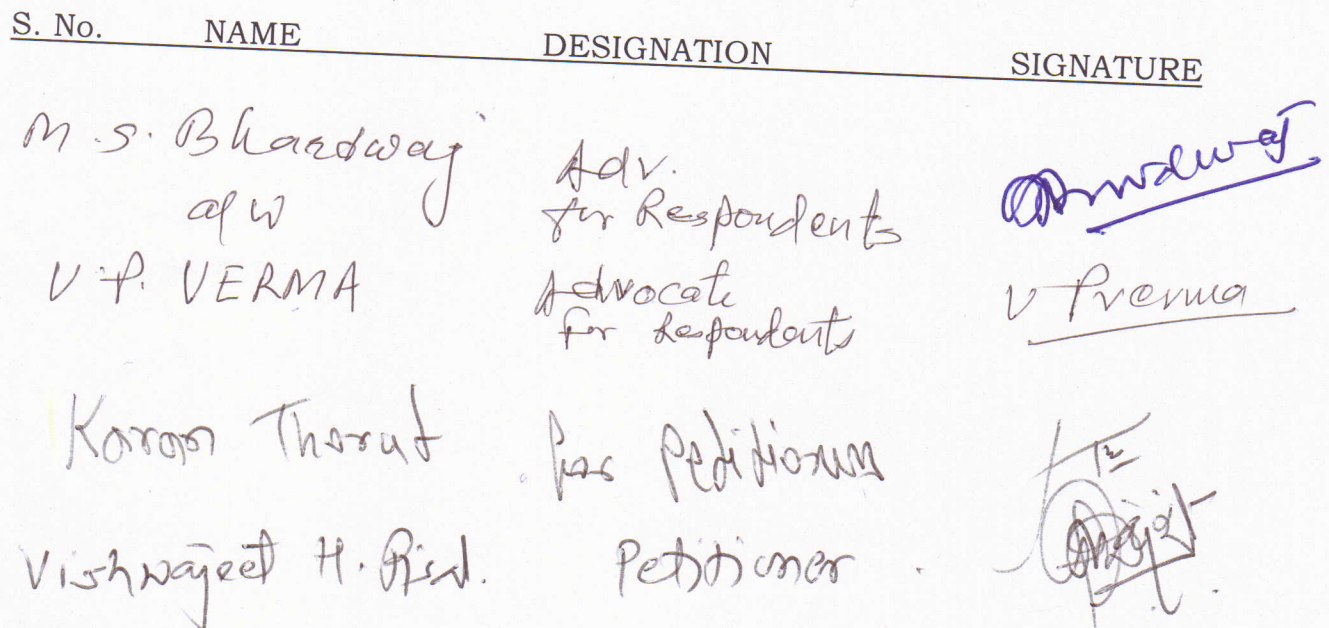 S. No. NAME DESIGNATION SIGNATURE
M.S. Bhardwaj Adv.
a/w for Respondents
V.P. VERMA Advocate V Pverma
for Respondents
Karan Thorat for Petitioner
Vishwajeet H. Petitioner